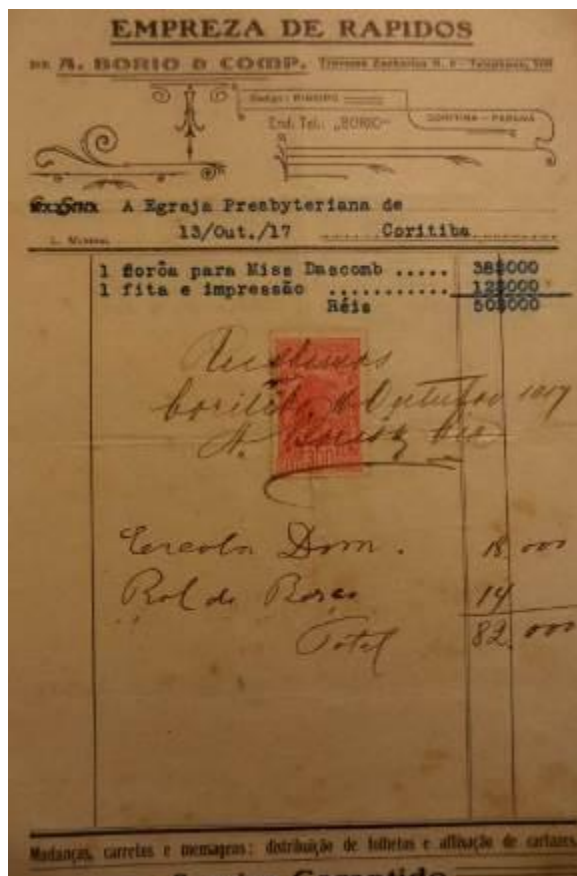 EMPREZA DE RAPIDOS
DE A. BORIO & COMP. Travessa Zacharias N. 6 - Telephone,
Codigo: RIBEIRO
End. Tel.: „BORIO" CORITIBA - PARANÁ
A Egreja Presbyteriana de
13/Out./17 Coritiba
1 Corôa para Miss Dascomb ..... 38$000
1 fita e impressão ........... 12$000
Réis 50$000
Recebemos
Coritiba, Outubro 1917
A. Borio & Cia
300
Escola Dom. 18.000
Rol do 14
Total 82.000
Mudanças, carretos e mensagens: distribuição de folhetos e affixação de cartazes.
Garantido